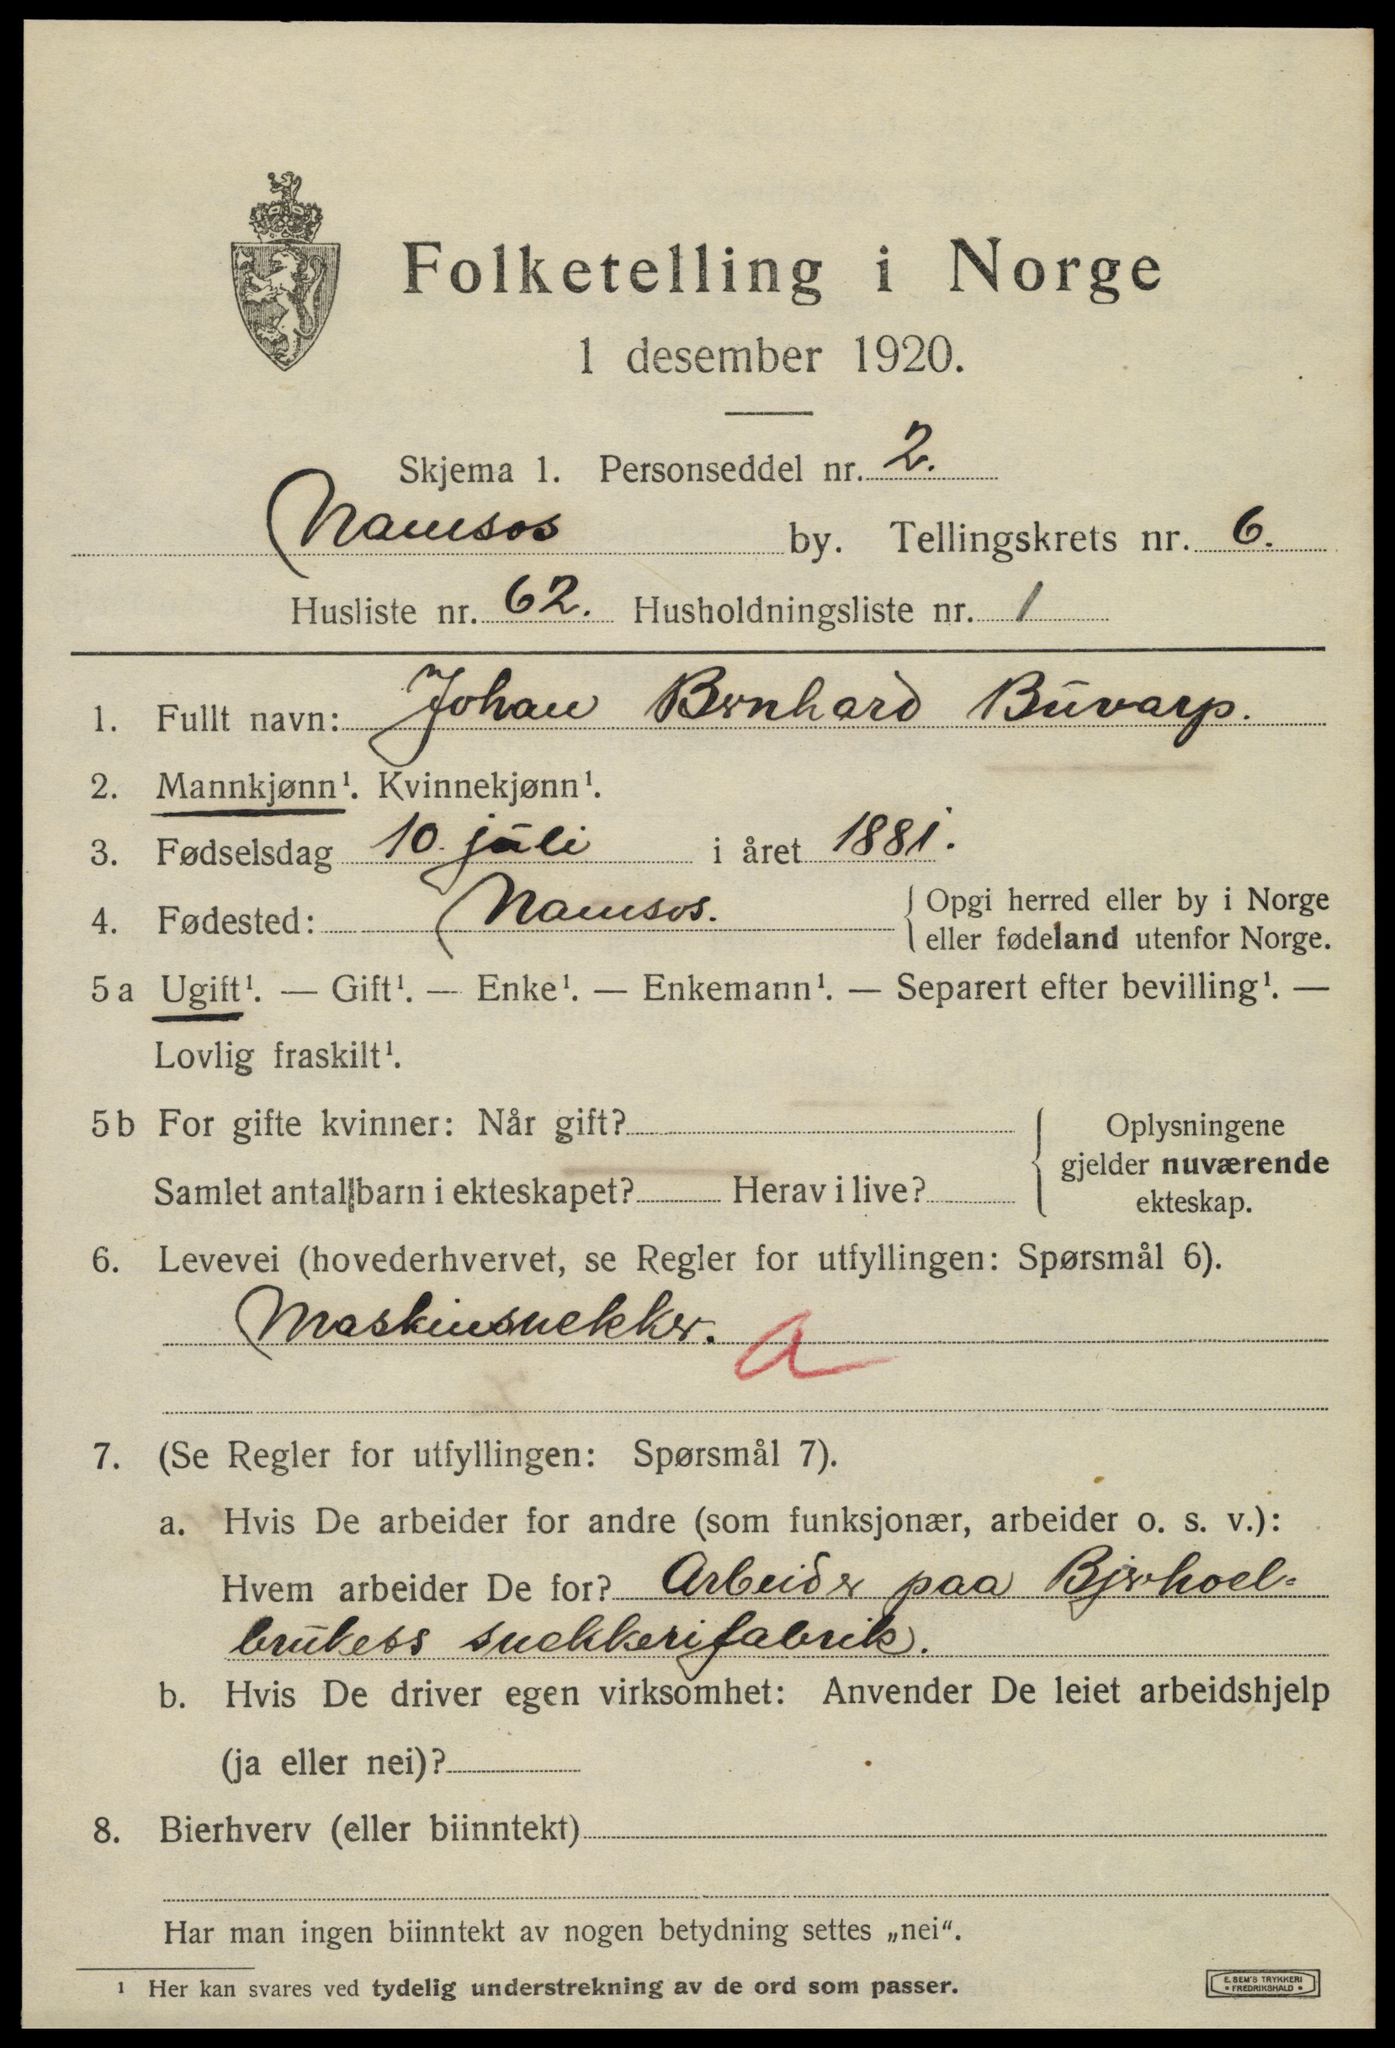 Folketelling i Norge
1 desember 1920.
Skjema 1. Personseddel nr. 2.
Namsos by. Tellingskrets nr. 6.
Husliste nr. 62. Husholdningsliste nr. 1
1. Fullt navn: Johan Bernhard Buvarp.
2. Mannkjønn¹. Kvinnekjønn¹.
3. Fødselsdag 10. juli i året 1881.
4. Fødested: Namsos. { Opgi herred eller by i Norge
eller fødeland utenfor Norge.
5 a Ugift¹. — Gift¹. — Enke¹. — Enkemann¹. — Separert efter bevilling¹. —
Lovlig fraskilt¹.
5 b For gifte kvinner: Når gift? { Oplysningene
gjelder nuværende
Samlet antall barn i ekteskapet? Herav i live? ekteskap.
6. Levevei (hovederhvervet, se Regler for utfyllingen: Spørsmål 6).
Maskinsnekker. A
7. (Se Regler for utfyllingen: Spørsmål 7).
a. Hvis De arbeider for andre (som funksjonær, arbeider o. s. v.):
Hvem arbeider De for? Arbeider paa Bjerhoel-
brukets snekkerifabrik.
b. Hvis De driver egen virksomhet: Anvender De leiet arbeidshjelp
(ja eller nei)?
8. Bierhverv (eller biinntekt)
Har man ingen biinntekt av nogen betydning settes „nei“.
¹ Her kan svares ved tydelig understrekning av de ord som passer.
E. SEM'S TRYKKERI
• FREDRIKSHALD •